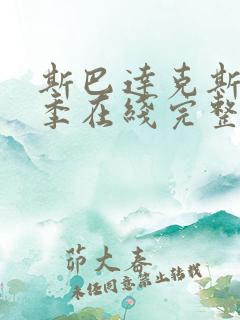 斯巴达克斯
季在线完整
茆大春
未经同意禁止转载